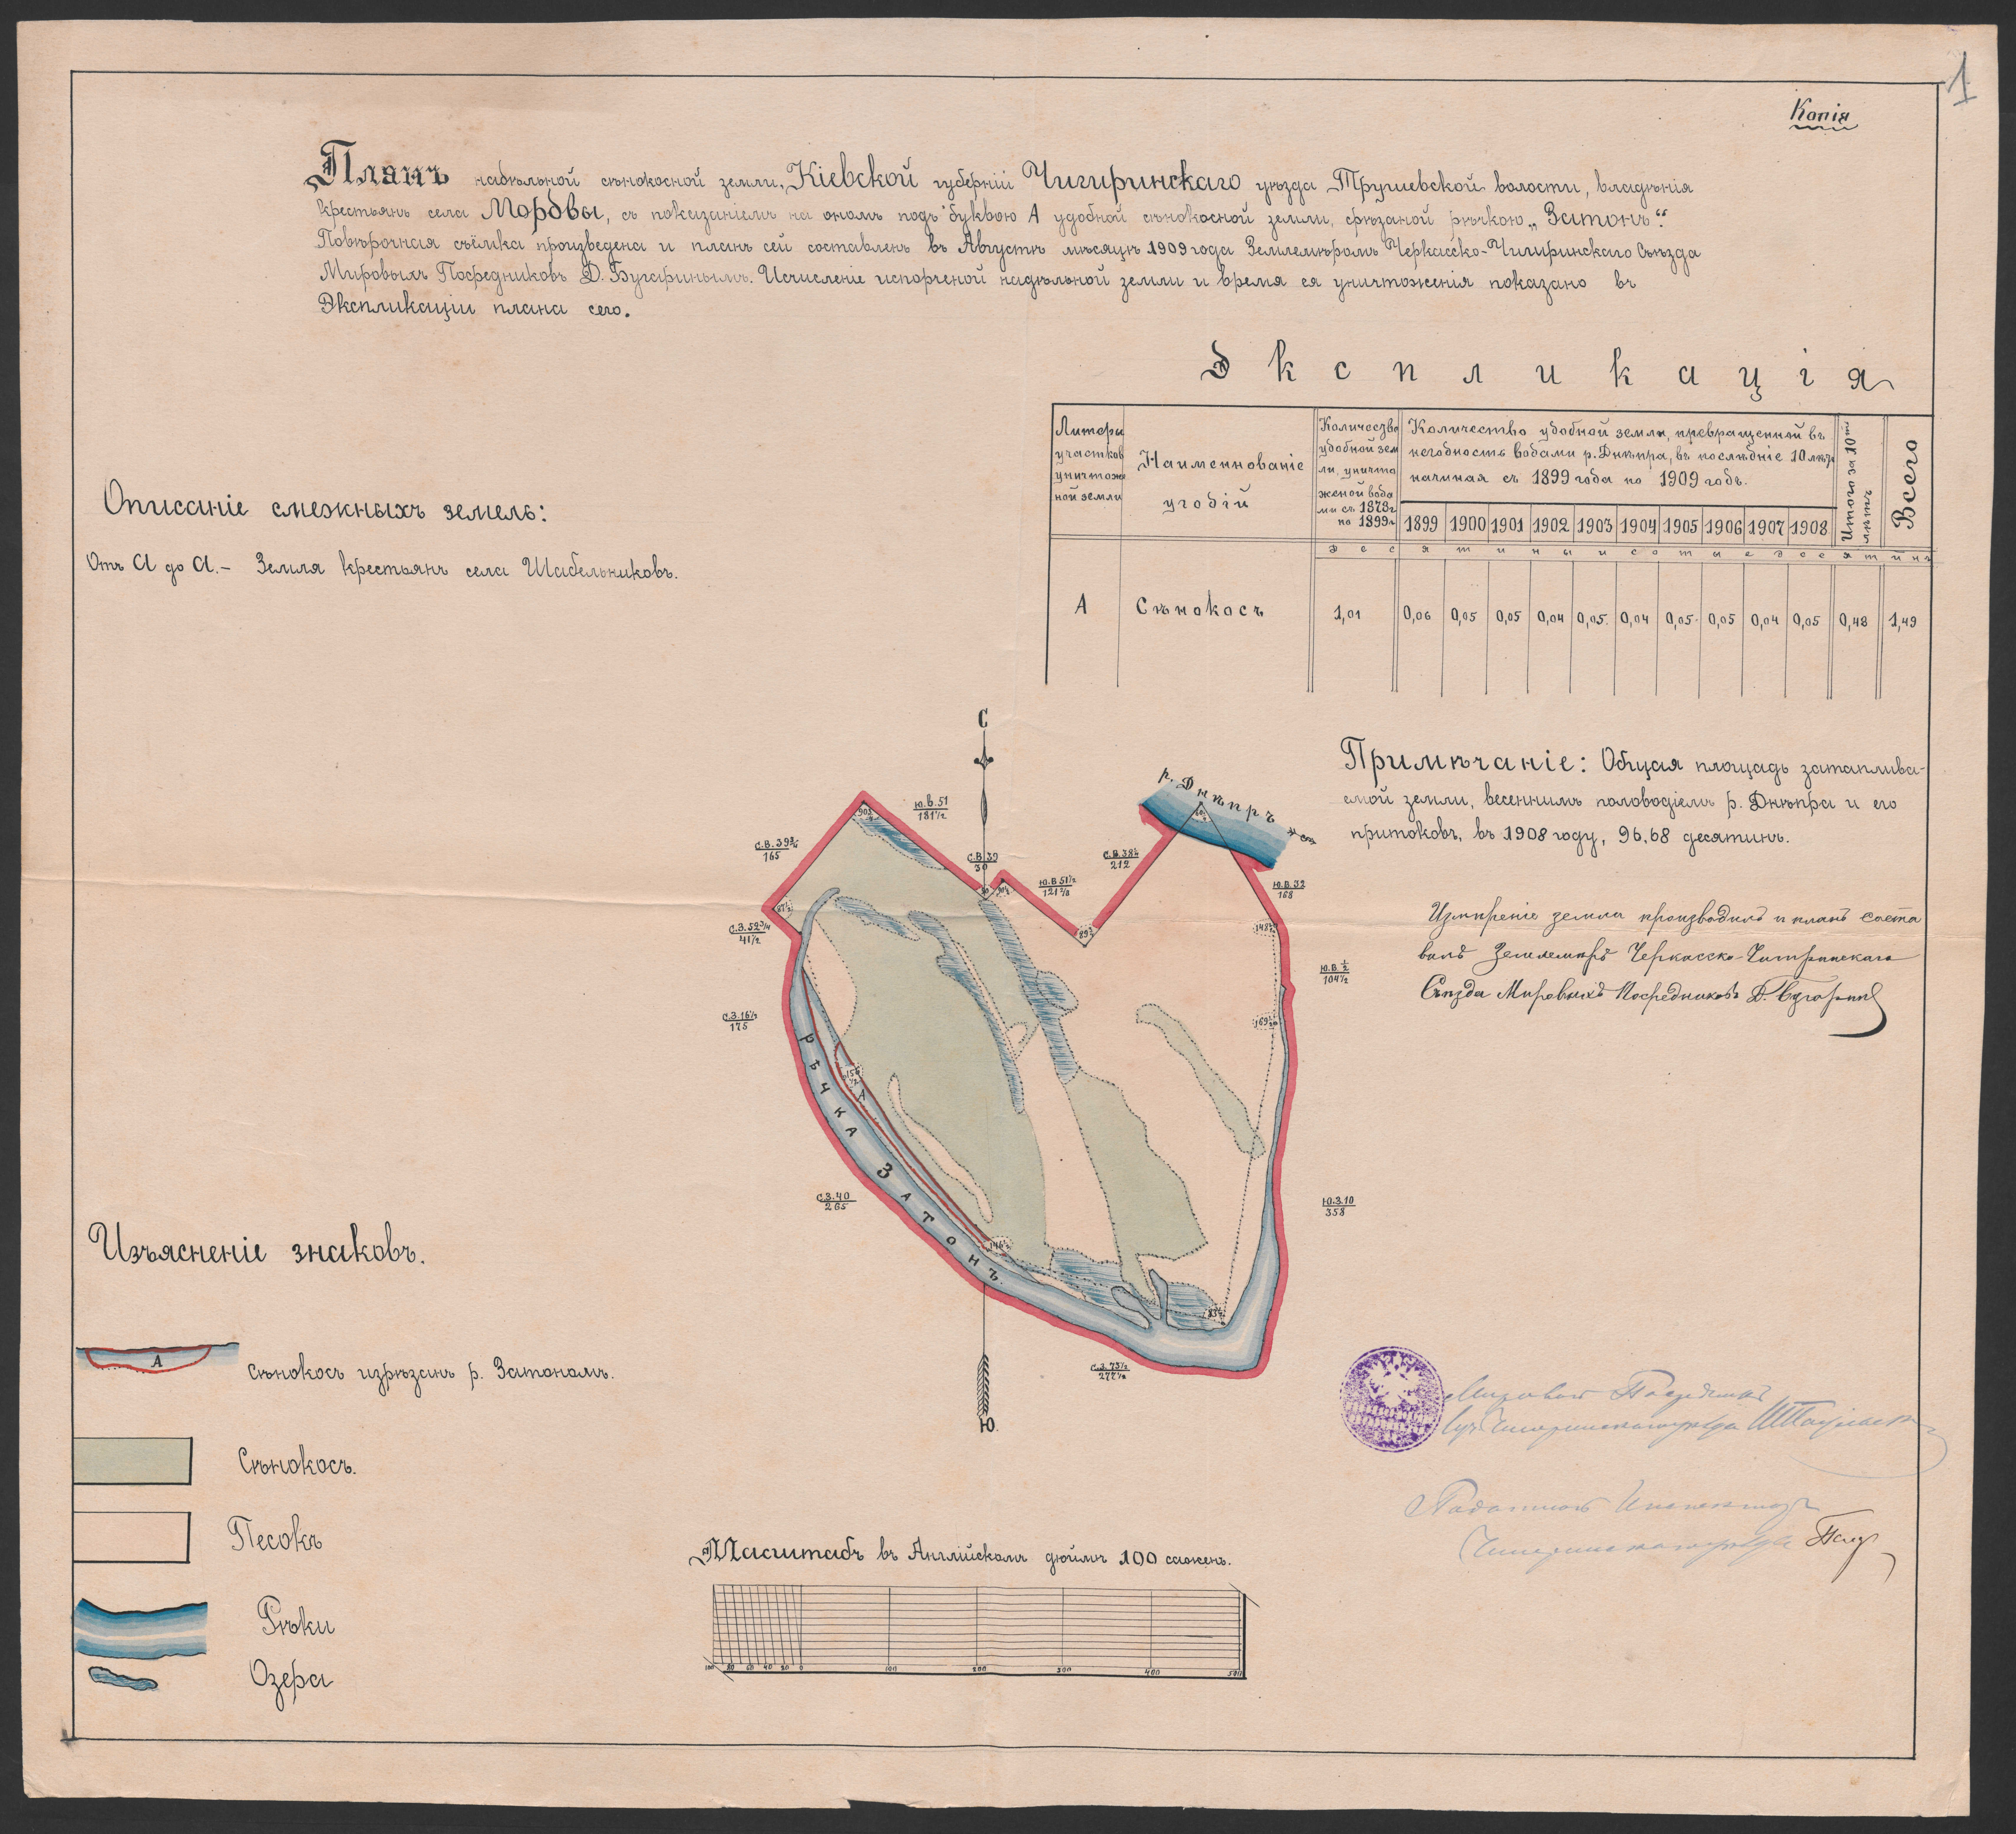 1
Копія
Планъ надѣльной сѣнокосной земли, Кіевской губерніи Чигиринскаго уѣзда Трушевской волости, владѣнія
крестьянъ села Мордвы, съ показаніемъ на ономъ подъ буквою А удобной сѣнокосной земли, срѣзаной рѣчкою „Затонъ“.
Повѣрочная съёмка произведена и планъ сей составленъ въ Августѣ мѣсяцѣ 1909 года Землемѣромъ Черкасско-Чигиринскаго Съѣзда
Мировыхъ Посредниковъ Д. Бугаринымъ. Исчисленіе испорченой надѣльной земли и время ея уничтоженія показано въ
Экспликаціи плана сего.
Экспликація
Литеры
участков
уничтоже
ной земли
Наименнованіе
угодій
Количество
удобной зем
ли, уничто
женой вода
ми съ 1879г
по 1899г
Количество удобной земли, превращенной въ
негодность водами р. Днѣпра, въ послѣдніе 10 лѣтъ
начиная съ 1899 года по 1909 годъ.
Итого за 10ть
лѣтъ
Всего
1899 1900 1901 1902 1903 1904 1905 1906 1907 1908
десятины и сотые десятинъ
А Сѣнокосъ 1,01 0,06 0,05 0,05 0,04 0,05 0,04 0,05 0,05 0,04 0,05 0,48 1,49
Описаніе смежныхъ земель:
Отъ А до А.- Земля крестьянъ села Шабельниковъ.
Примѣчаніе: Общая площадь затапливае-
мой земли, весеннимъ половодіемъ р. Днѣпра и его
притоковъ, въ 1908 году, 96,68 десятинъ.
Измѣреніе земли производилъ и планъ соста
вилъ Землемѣръ Черкасско-Чигиринскаго
Съѣзда Мировыхъ Посредниковъ Д. Бугаринъ
С
р. Днѣпръ
Ю.В. 51
181 1/2
С.В. 39 3/4
165
С.В. 39
30
Ю.В 51 1/2
121 2/3
С.В. 38 1/2
212
Ю.В. 32
168
С.З. 52 3/4
41 1/2
Ю.В. 1/2
104 1/2
С.З. 16 1/2
175
С.З. 40
265
Ю.З. 10
358
С.З. 73 1/2
272 1/2
А
РѢЧКА ЗАТОНЪ.
Ю.
Изъясненіе знаковъ.
А
Сѣнокосъ изрѣзанъ р. Затономъ.
Сѣнокосъ.
Песокъ
Рѣки
Озера
Мировой Посредникъ
Чигиринскаго уѣзда
Податной Инспекторъ
Чигиринскаго уѣзда
Масштабъ въ Англійскомъ дюймѣ 100 сажень.
100 80 60 40 20 0 100 200 300 400 500